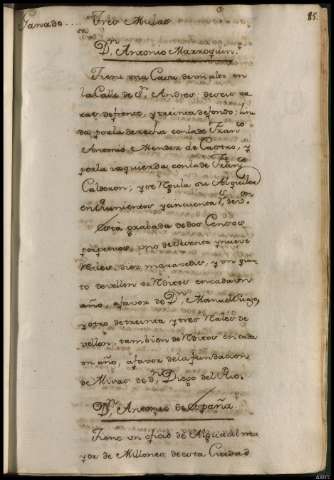 85.
Ganado.... Tres Mulas
Dn. Antonio Marroquin.
Tiene una Casa de vivir en
la Calle de Sn. Andres, de seis va
ras de frente, y treinta de fondo: lin
da por la derecha con la de Franco
Antonio Mendez de Castro, y
por la izquierda con la de Franco
Calderon, y se regula su Alquiler
en trescientos y cincuenta rs. von
Está grabada de dos Censos
perpetuos, uno de treinta y nueve
reales, diez maravedis, y un
de vellon de reditos en cada un
año, a favor de Dn. Manuel
y otro de treinta y tres reales de
vellon, tambien de reditos en cada
un año, a favor de la fundacion
de Misas de Dn. Diego del Rio.
Dn. Antonio de España
Tiene un oficio de Alguacil ma
yor de Millones de esta Ciudad